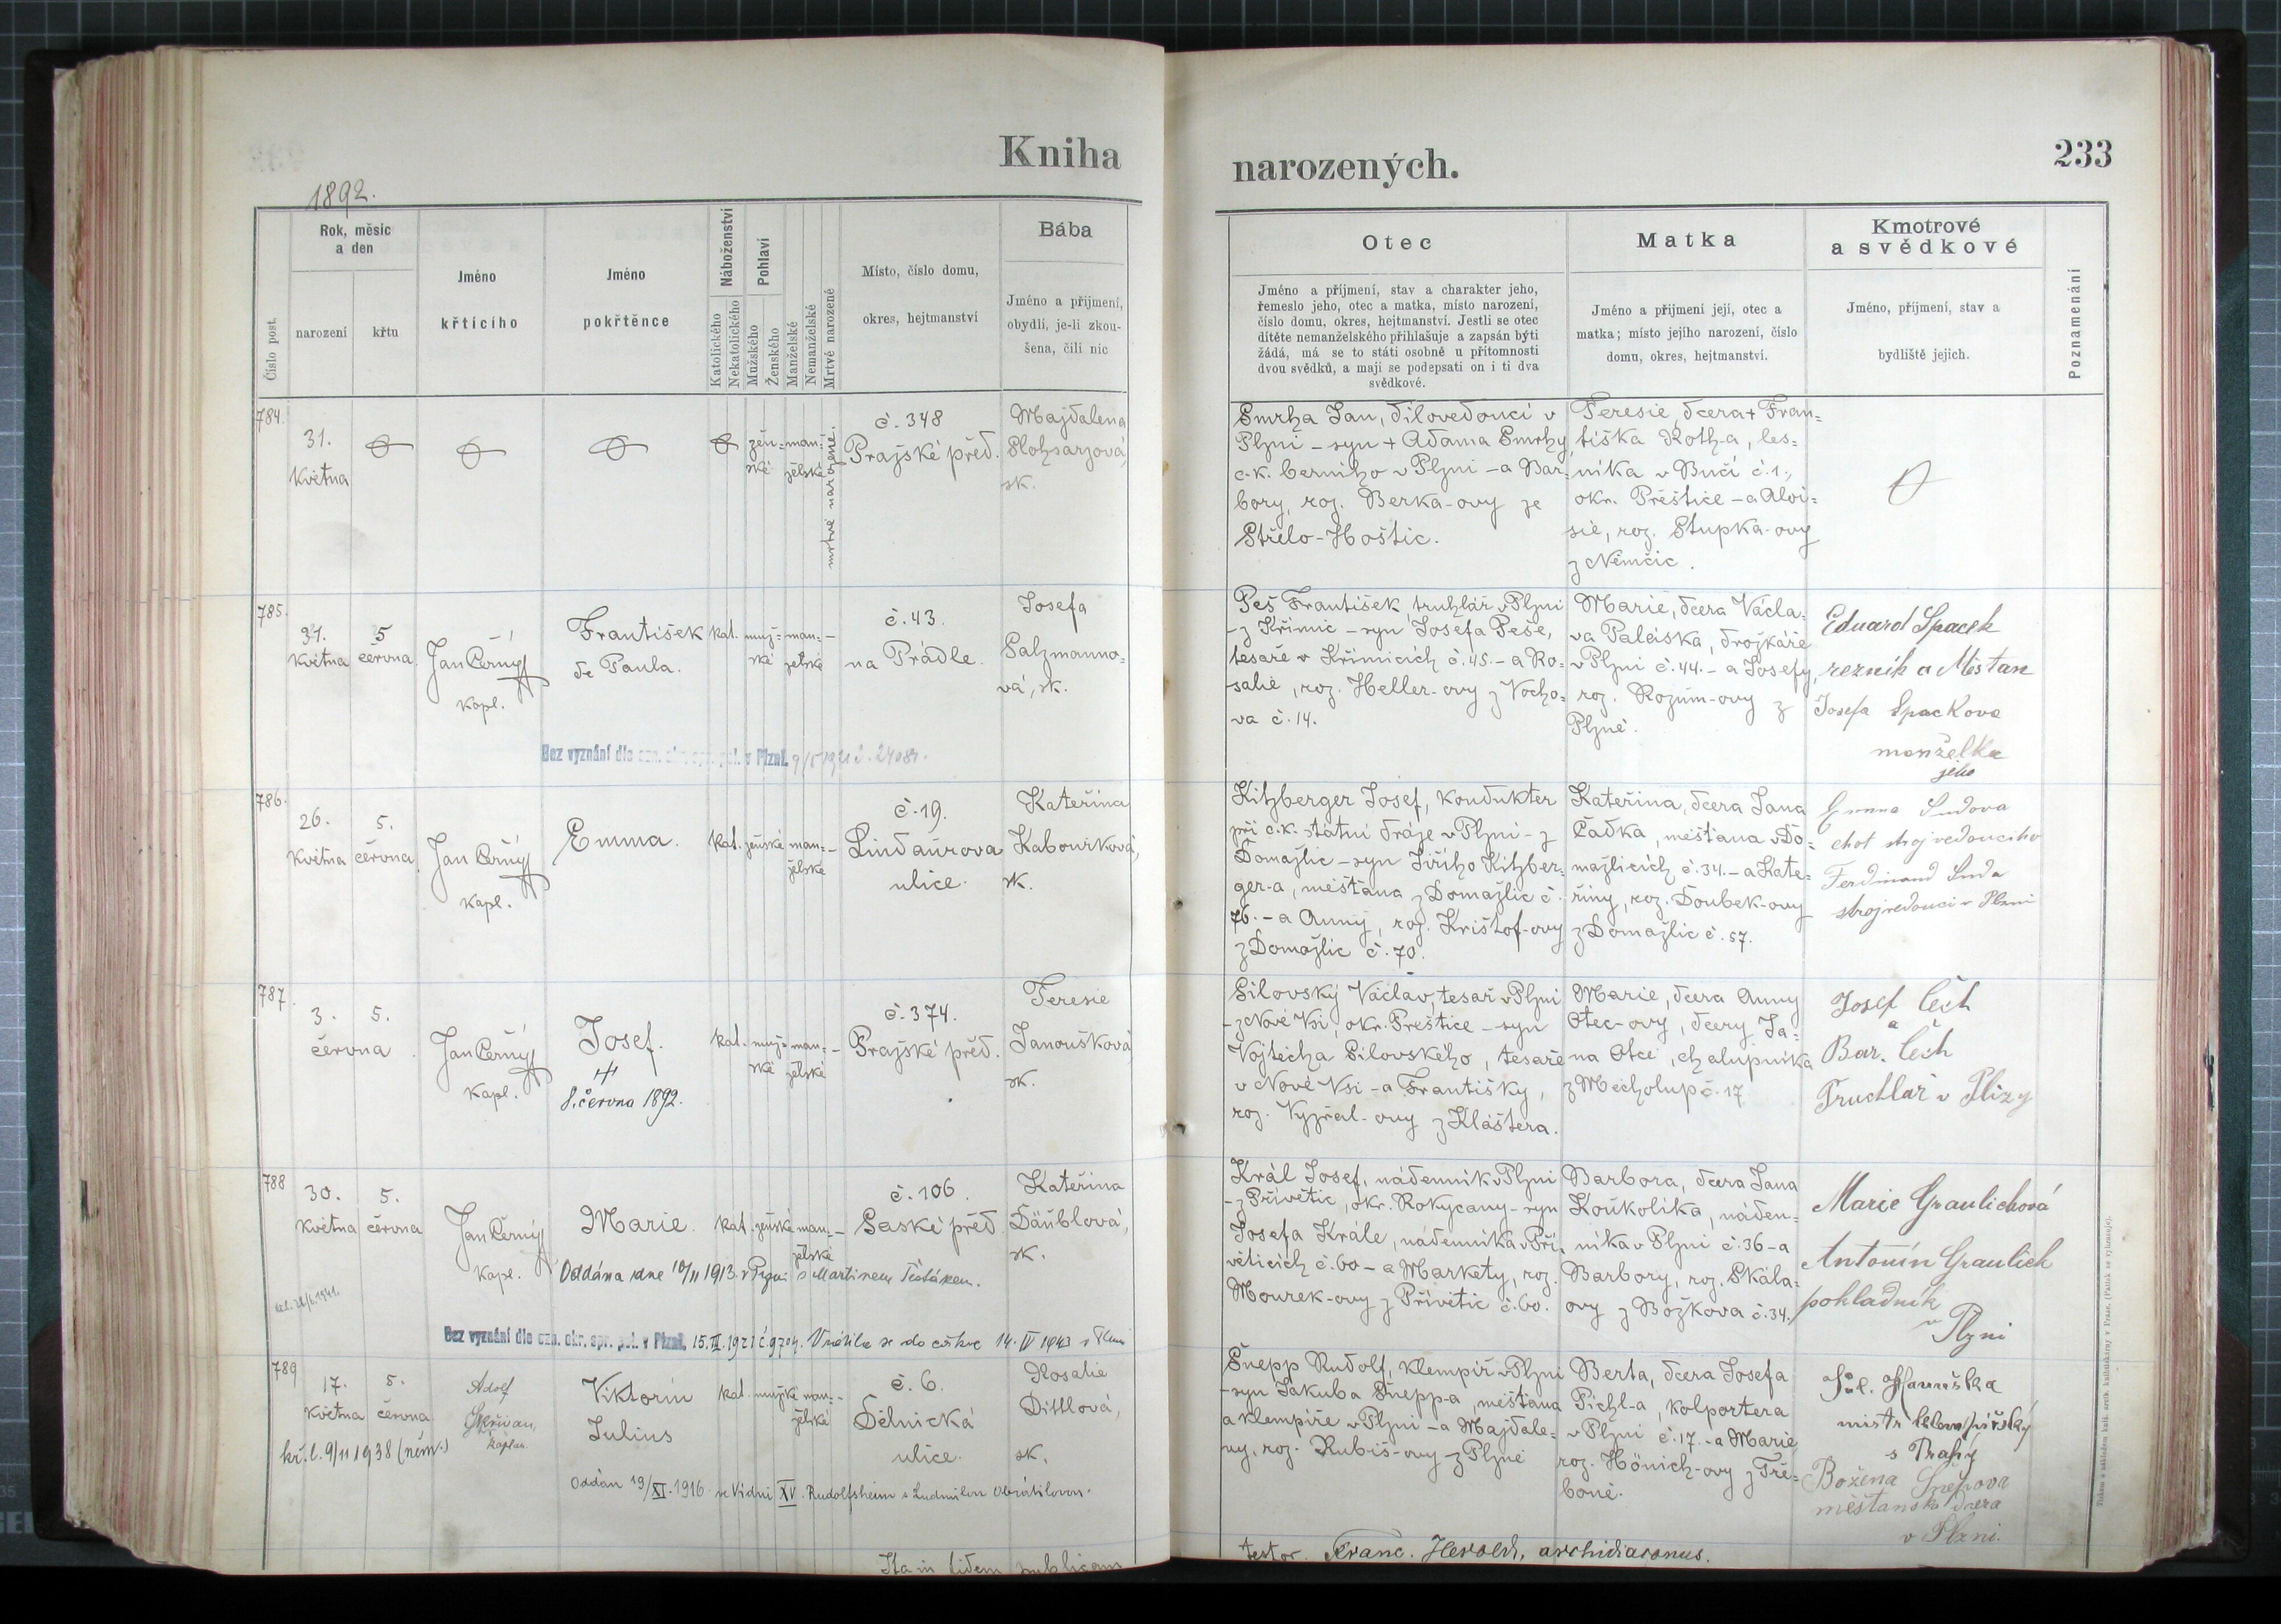 Kniha
narozených.
233
1892.
Číslo post.
Rok, měsíc
a den
narození
křtu
Jméno
křtícího
Jméno
pokřtěnce
Náboženství
Katolického
Nekatolického
Pohlaví
Mužského
Ženského
Manželské
Nemanželské
Mrtvě narozené
Místo, číslo domu,
okres, hejtmanství
Bába
Jméno a příjmení,
obydlí, je-li zkou-
šena, čili nic
Otec
Jméno a příjmení, stav a charakter jeho,
řemeslo jeho, otec a matka, místo narození,
číslo domu, okres, hejtmanství. Jestli se otec
dítěte nemanželského přihlašuje a zapsán býti
žádá, má se to státi osobně u přítomnosti
dvou svědků, a mají se podepsati on i ti dva
svědkové.
Matka
Jméno a příjmení její, otec a
matka; místo jejího narození, číslo
domu, okres, hejtmanství.
Kmotrové
a svědkové
Jméno, příjmení, stav a
bydliště jejich.
Poznamenání
784.
31.
května
žen-
ské
man-
želské
mrtvě narozené.
č. 348
Pražské před.
Majdalena
sk.
Smrha Jan, dílovedoucí v
Plzni - syn + Adama Smrhy
c.k. berního v Plzni - a Bar-
bory, roz. Berka-ovy ze
Střelo-Hoštic.
Teresie, dcera + Fran=
tiška Roth-a, les=
níka v Bučí č. 1.,
okr. Přeštice - a Aloi=
sie, roz. Stupka-ovy
z Němčic.
785.
31.
května
5
června
Jan Černý
kapl.
František
de Paula.
kat.
muž-
ské
man-
želské
č. 43.
na Prádle.
Josefa
Salzmanno-
vá, sk.
Bez vyznání dle ozn. okr. spr. pol. v Plzni. 9/5 1921 č. 24081.
Peš František truhlář v Plzni
- z Křimic - syn Josefa Peše,
tesaře v Křimicích č. 45. - a Ro-
salie, roz. Heller-ovy z Vocho=
va č. 14.
Marie, dcera Václa-
va Palciska, drožkáře
v Plzni č. 44. - a Josefy,
roz. Rozum-ovy z
Plzně.
Eduard Spacek
reznik a Mestan
Josefa Spackova
manželka
jeho
786.
26.
května
5.
června
Jan Černý
kapl.
Emma.
kat.
ženské
man-
želské
č. 19.
Lindaurova
ulice.
Kateřina
Kabourková,
sk.
Kitzberger Josef, kondukter
při c.k. státní dráze v Plzni - z
Domažlic - syn Jiřího Kitzber-
ger-a, měšťana z Domažlic č.
76. - a Anny, roz. Krištof-ovy
z Domažlic č. 70.
Kateřina, dcera Jana
Čadka, měšťana v Do-
mažlicích č. 34. - a Kate-
řiny, roz. Doubek-ovy
z Domažlic č. 57.
Emma Sudova
chot strojvedoucího
Ferdinand Suda
strojvedoucí v Plzni
787.
3.
5.
června
Jan Černý
kapl.
Josef.
8. června 1892.
kat.
muž-
ské
man-
želské
č. 374.
Pražské před.
Teresie
Janoušková
sk.
Silovský Václav, tesař v Plzni
- z Nové Vsi, okr. Přeštice - syn
Vojtěcha Silovského, tesaře
v Nové Vsi - a Františky,
roz. Vyzral-ovy z Kláštera.
Marie, dcera Anny
Otec-ovy, dcery Ja-
na Otce, chalupníka
z Měcholup č. 17
Josef Čech
a
Bar. Čech
Truchlař v Plizy
788
30.
května
5.
června
Jan Černý
kapl.
Marie.
kat.
ženské
man-
želské
č. 106.
Saské před
Kateřina
Däublová,
sk.
Oddána dne 10/II 1913. v Plzni s Martinem
Bez vyznání dle ozn. okr. spr. pol. v Plzni. 15. III. 1921 č. 9704. Vrátila se do církve 14. IV 1943 v Plzni
Král Josef, nádenník v Plzni
- z Přívětic, okr. Rokycany - syn
Josefa Krále, nádenníka v Pří-
věticích č. 60 - a Markety, roz.
Mourek-ovy z Přívětic č. 60.
Barbora, dcera Jana
Koukolíka, náden-
níka v Plzni č. 36 - a
Barbory, roz. Skála-
ovy z Božkova č. 34.
Marie Graulichová
Antonín Graulich
pokladník
v Plzni
789
17.
května
5.
června
kř. l. 9/11 1938 (něm.)
Adolf
Skřivan,
kaplan.
Viktorin
Julius
kat.
mužské
man-
želské
č. 6.
Dělnická
ulice.
Rosalie
Dittlová,
sk.
Oddán 19/XI. 1916 ve Vídni XV. Rudolfsheim s Ludmilou Obrátilovou.
Šnepp Rudolf, klempíř v Plzni
- syn Jakuba Šnepp-a, měšťana
a klempíře v Plzni - a Majdale-
ny, roz. Kubiš-ovy z Plzně
Berta, dcera Josefa
Pichl-a, kolportera
v Plzni č. 17. - a Marie
roz. Hönich-ovy z Tře-
boně.
mistr
s Prahy
Božena Šnepova
měšťanská dcera
v Plzni.
Ita in fidem publicam
testor Franc. Herold, archidiaconus.